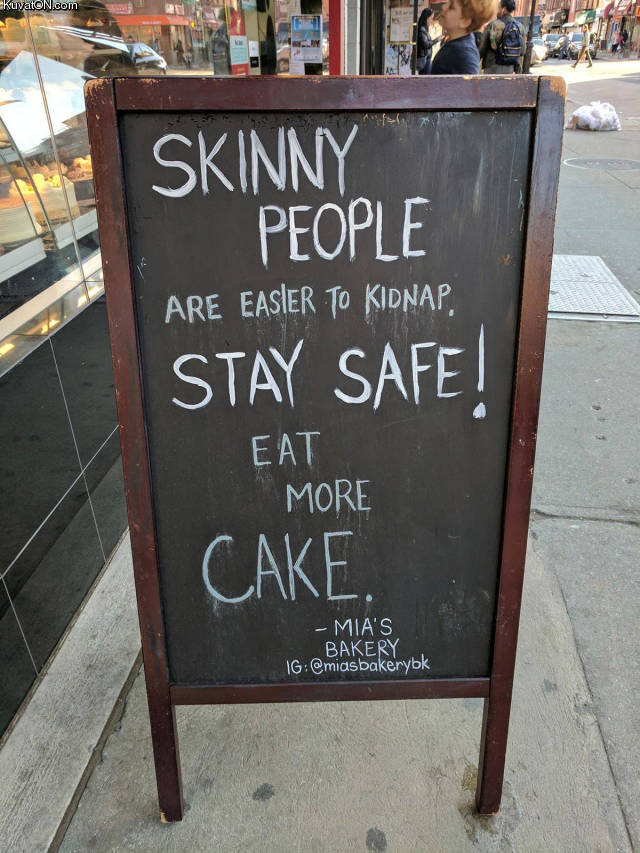 KuvatON.com
SKINNY
PEOPLE
ARE EASIER TO KIDNAP.
STAY SAFE!
EAT
MORE
CAKE.
- MIA'S
BAKERY
IG: @miasbakerybk